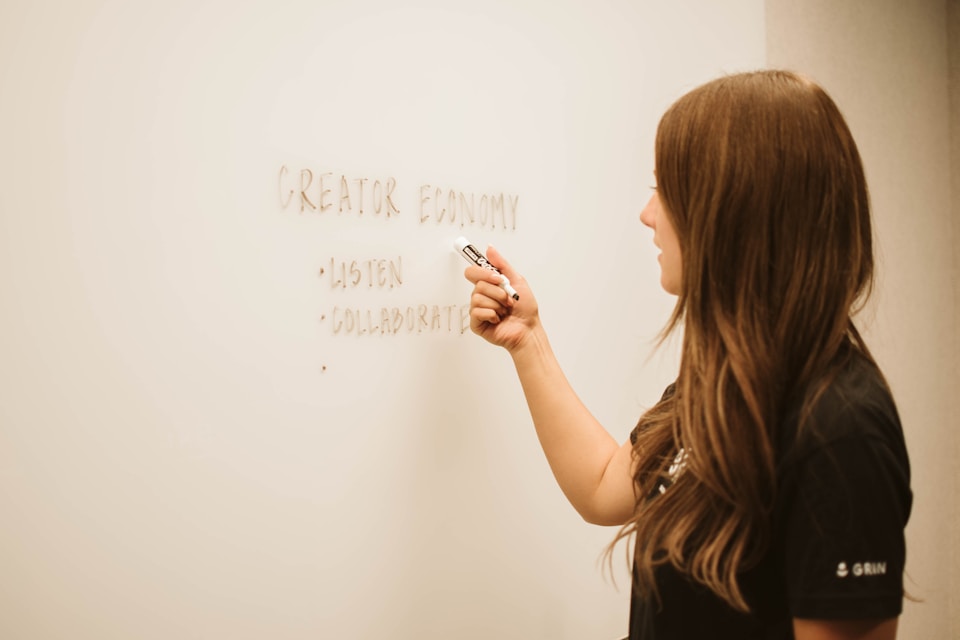 CREATOR ECONOMY
• LISTEN
• COLLABORATE
•
GRIN